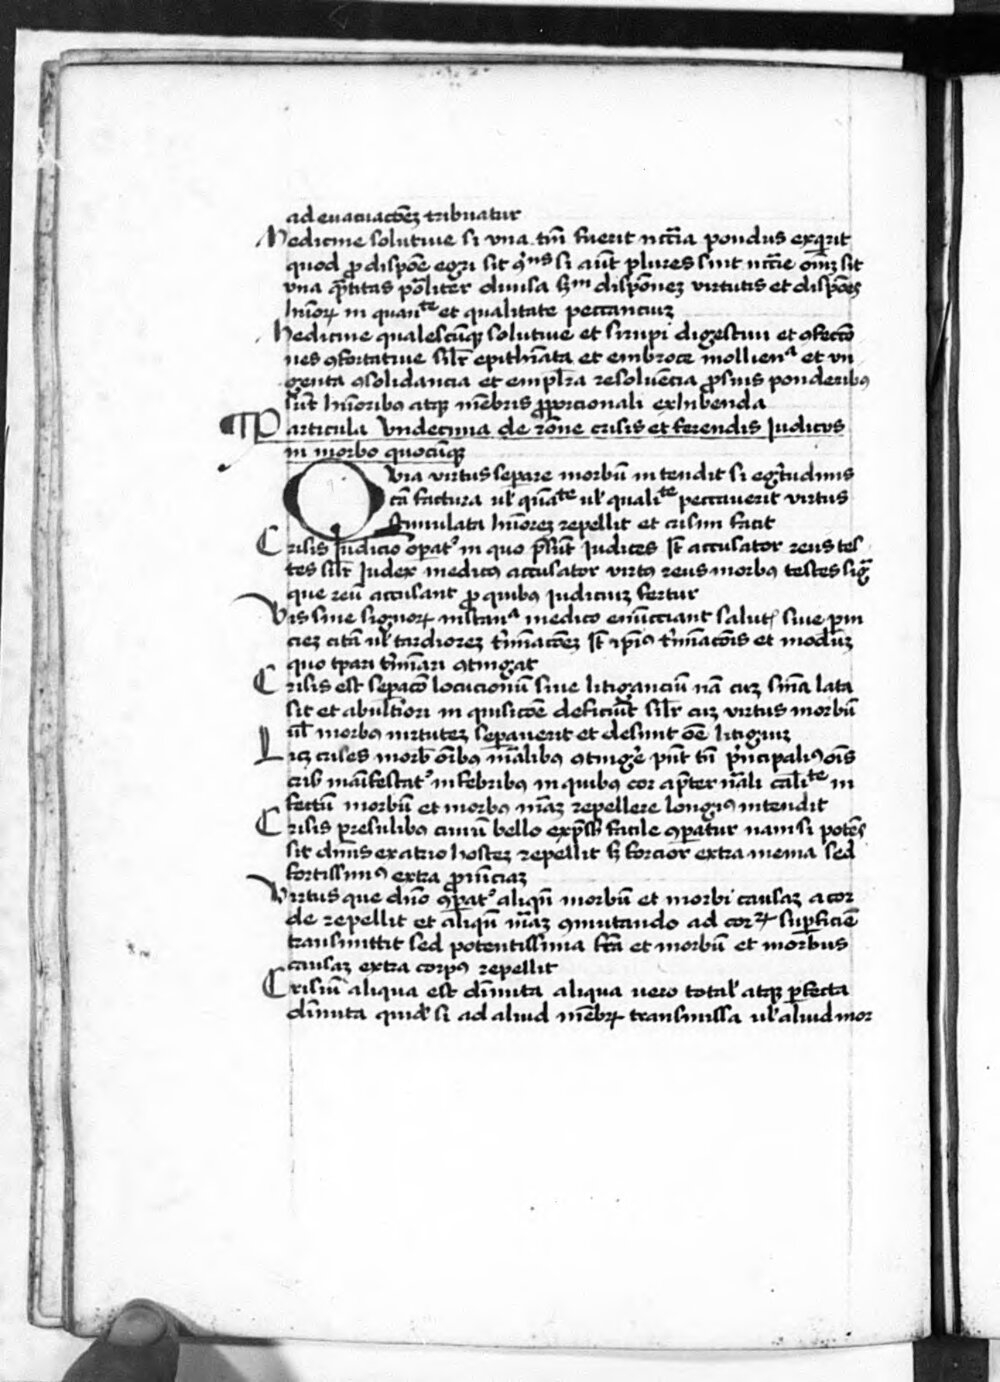 ad euacuacoēz tribuatur
Medicine solutiue si vna tm̄ fuerit nccīa pondus exqrit
quod ꝓ dispōe egri sit ꝯns si aūt plures sint nccīe oīm sit
vna qn̄titas pōliter diuisa scdm disponez virtutis et dispoēs
humorꝝ in quante et qualitate peccanciuz
Medicine qualescūqꝫ solutiue et sirupi digestiui et ꝯfeccō
nes ꝯfortatiue silr epithimata et embroce molliena et vn
genta ꝯsolidancia et emplr̄a resoluēcia ꝓ suis ponderibꝰ
sūt hūoribꝰ atqꝫ mēbris ꝓporcionali exhibenda
Particula vndecima de rōne crisis et ferendis Iudicijs
in morbo quocūqꝫ
Qvia virtus separe morbū intendit si egritudinis
cā factura ul̓ quāte ul̓ qualite peccauerit virtus
stimulata hūores repellit et crisim facit
Crisis Iudicio opatr in quo p̄sūt Iudices sꝫ accusator reus tes
tes silr Iudex medicꝰ accusator virtꝰ reus morbꝰ testes sigā
que reū accusant ꝓ quibꝰ iudiciuz fertur
Vis siue signorꝝ instana medico enūcciant salutē siue pni
ciez citā ul̓ tardiorez t̓minacōez sꝫ ipīꝰ t̓minacōis et moduz
quo tpari t̓minari ꝯtingat
Crisis est sepacō locucionū siue litiganciū nā cuz sn̄ia lata
sit et abulṫiori in quisicōe deficiūt silr cuz virtus morbū
ul̓ morbꝰ virtutez sepauerit et desunt oē litigiuz
Licꝫ crises morb̄ oībꝰ mālibꝰ ꝯtinge pn̄t tn̄ p̓ncipaliꝰ oīs
cris̄ māfestatr in febribꝰ in quibꝰ cor apter nāli calite in
fectū morbū et morbꝰ māz repellere longiꝰ intendit
Crisis presulibꝰ ciuiū bello exp̄sso facile ꝯparatur nam si potēs
sit dn̄us ex atrio hostez repellit sꝫ forcior extra menia sed
fortissimꝰ extra ꝓuinciaz
Virtus que dn̄o ꝯparatr aliqn̄ morbū et morbi causaz a cor
de repellit et aliqn̄ māz ꝯmutando ad corꝝ supficiē
transmittit sed potentissima ftā et morbū et morbus
causaz extra corpꝰ repellit
Crisiū aliqua est dīminuta aliqua uero total̓ atqꝫ pfecta
dīminuta quid̓ si ad aliud mēbrꝝ transmissa ul̓ aliud mor